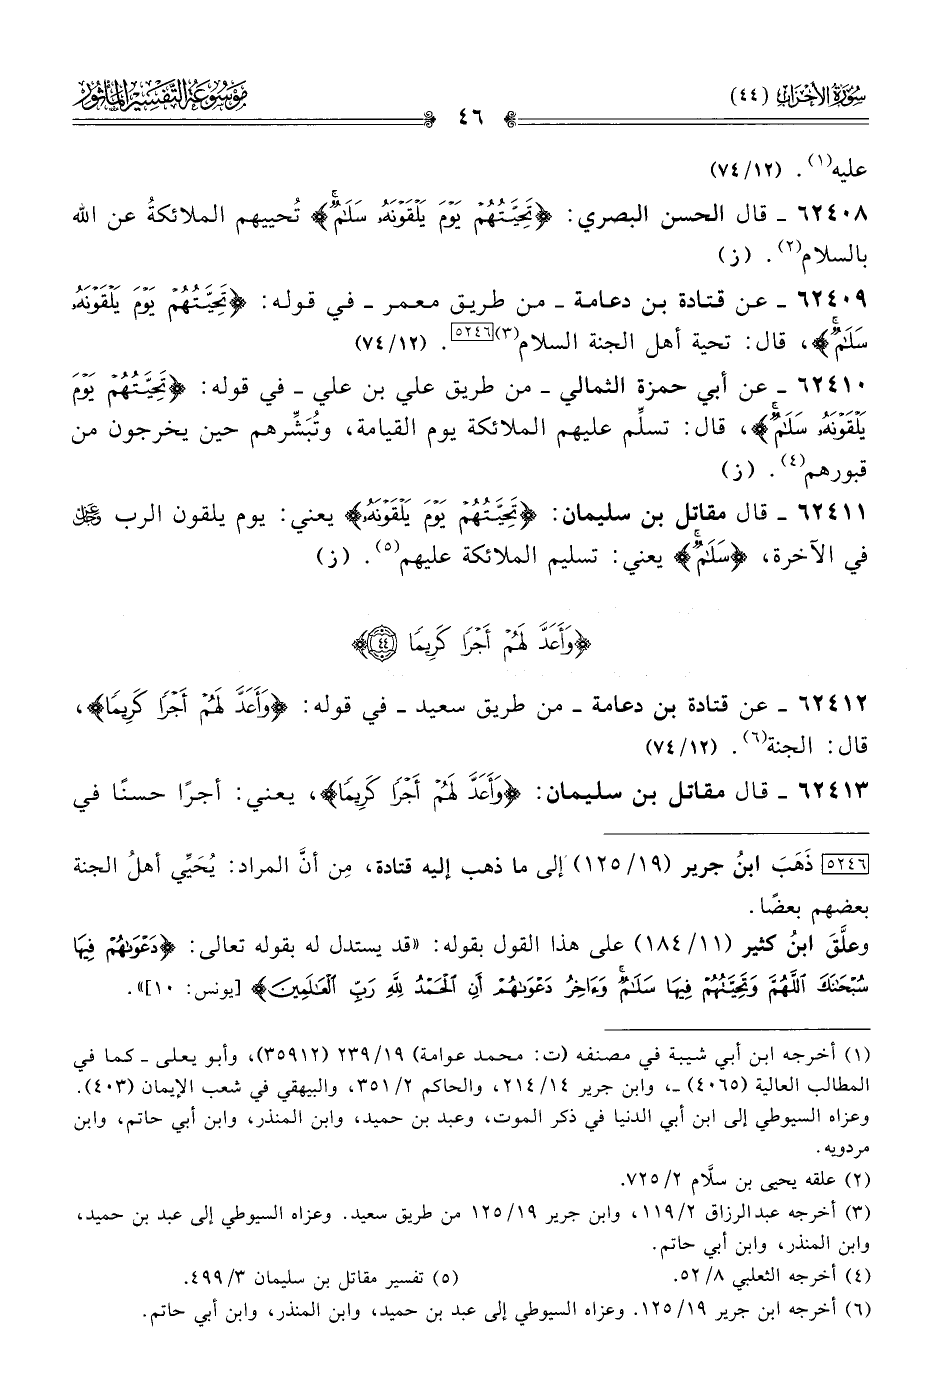 سورة الأحزاب (٤٤)
٤٦
موسوعة التفسير المأثور
عليه(١). (٧٤/١٢)
٦٢٤٠٨ ـ قال الحسن البصري: ﴿تَحِيَّتُهُمْ يَوْمَ يَلْقَوْنَهُۥ سَلَـٰمٌۚ﴾ تُحييهم الملائكةُ عن الله
بالسلام(٢). (ز)
٦٢٤٠٩ ـ عن قتادة بن دعامة ـ من طريق معمر ـ في قوله: ﴿تَحِيَّتُهُمْ يَوْمَ يَلْقَوْنَهُۥ
سَلَـٰمٌۚ﴾، قال: تحية أهل الجنة السلام(٣)[٥٢٤٦]. (٧٤/١٢)
٦٢٤١٠ ـ عن أبي حمزة الثمالي ـ من طريق علي بن علي ـ في قوله: ﴿تَحِيَّتُهُمْ يَوْمَ
يَلْقَوْنَهُۥ سَلَـٰمٌۚ﴾، قال: تسلِّم عليهم الملائكة يوم القيامة، وتُبَشِّرهم حين يخرجون من
قبورهم(٤). (ز)
٦٢٤١١ ـ قال مقاتل بن سليمان: ﴿تَحِيَّتُهُمْ يَوْمَ يَلْقَوْنَهُۥ﴾ يعني: يوم يلقون الرب عَزَّ وَجَلَّ
في الآخرة، ﴿سَلَـٰمٌۚ﴾ يعني: تسليم الملائكة عليهم(٥). (ز)
﴿وَأَعَدَّ لَهُمْ أَجْرًا كَرِيمًا ٤٤﴾
٦٢٤١٢ ـ عن قتادة بن دعامة ـ من طريق سعيد ـ في قوله: ﴿وَأَعَدَّ لَهُمْ أَجْرًا كَرِيمًا﴾،
قال: الجنة(٦). (٧٤/١٢)
٦٢٤١٣ ـ قال مقاتل بن سليمان: ﴿وَأَعَدَّ لَهُمْ أَجْرًا كَرِيمًا﴾، يعني: أجرًا حسنًا في
[٥٢٤٦] ذَهَبَ ابنُ جرير (١٢٥/١٩) إلى ما ذهب إليه قتادة، مِن أنَّ المراد: يُحَيِّي أهلُ الجنة
بعضهم بعضًا.
وعلَّقَ ابنُ كثير (١٨٤/١١) على هذا القول بقوله: «قد يستدل له بقوله تعالى: ﴿دَعْوَىٰهُمْ فِيهَا
سُبْحَـٰنَكَ ٱللَّهُمَّ وَتَحِيَّتُهُمْ فِيهَا سَلَـٰمٌۚ وَءَاخِرُ دَعْوَىٰهُمْ أَنِ ٱلْحَمْدُ لِلَّهِ رَبِّ ٱلْعَـٰلَمِينَ﴾ [يونس: ١٠]».
(١) أخرجه ابن أبي شيبة في مصنفه (ت: محمد عوامة) ٢٣٩/١٩ (٣٥٩١٢)، وأبو يعلى ـ كما في
المطالب العالية (٤٠٦٥) ـ، وابن جرير ٢١٤/١٤، والحاكم ٣٥١/٢، والبيهقي في شعب الإيمان (٤٠٣).
وعزاه السيوطي إلى ابن أبي الدنيا في ذكر الموت، وعبد بن حميد، وابن المنذر، وابن أبي حاتم، وابن
مردويه.
(٢) علقه يحيى بن سلَّام ٧٢٥/٢.
(٣) أخرجه عبدالرزاق ١١٩/٢، وابن جرير ١٢٥/١٩ من طريق سعيد. وعزاه السيوطي إلى عبد بن حميد،
وابن المنذر، وابن أبي حاتم.
(٤) أخرجه الثعلبي ٥٢/٨. (٥) تفسير مقاتل بن سليمان ٤٩٩/٣.
(٦) أخرجه ابن جرير ١٢٥/١٩. وعزاه السيوطي إلى عبد بن حميد، وابن المنذر، وابن أبي حاتم.